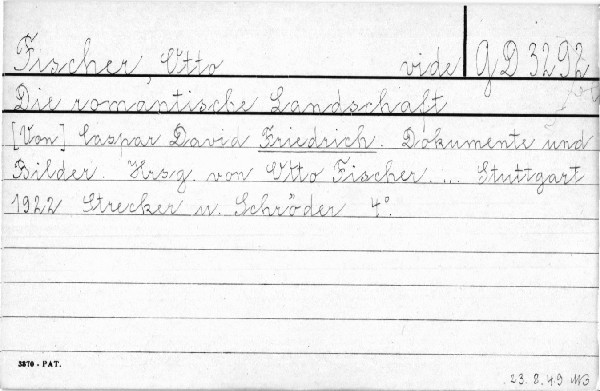 Fischer, Otto vide GD 3292
Die romantische Landschaft
[Von] Caspar David Friedrich. Dokumente und
Bilder. Hrsg. von Otto Fischer. ... Stuttgart
1922 Strecker u. Schröder 4°.
3870 - PAT.
23. 8. 49